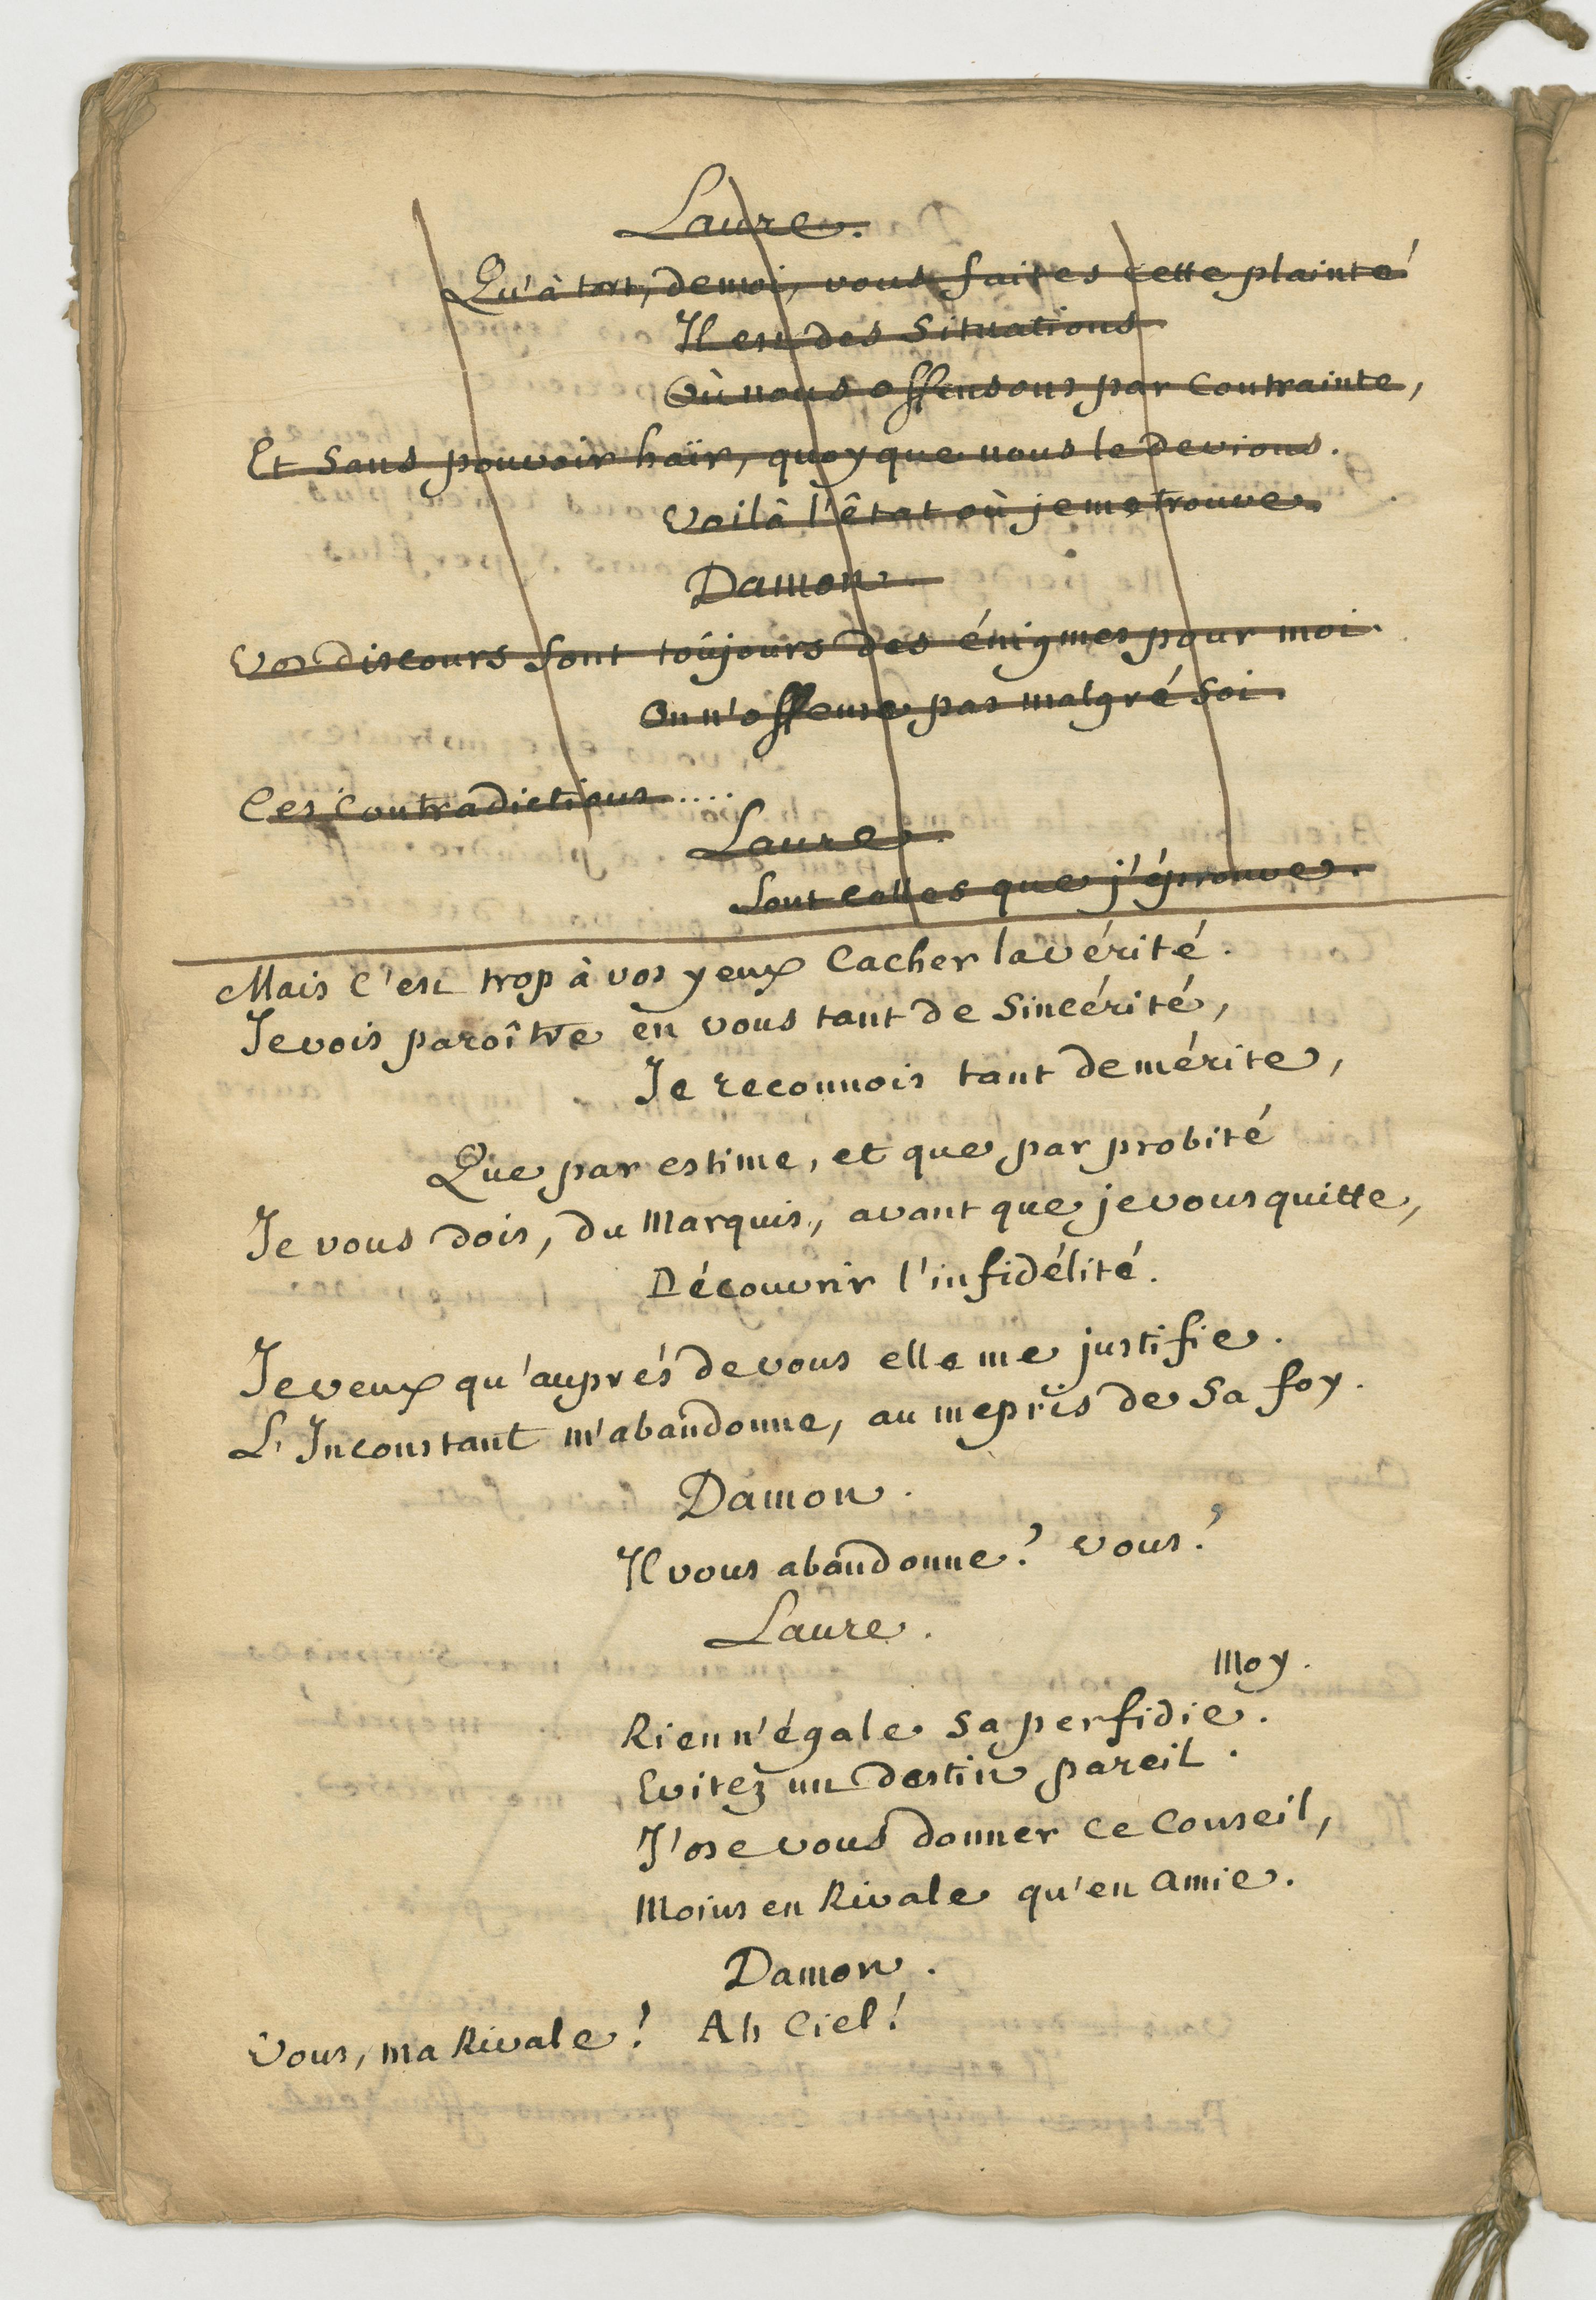 Laure.
Qu'à tort, de moi, vous faites cette plainte
Il est des situations
Où nous offensons par contrainte,
Et sans pouvoir haïr, quoy que nous le devions.
Voilà l'état où je me trouve.
Damon.
Vos discours sont toûjours des énigmes pour moi.
On n'offense pas malgré soi.
Ces contradictions.....
Laure.
Sont celles que j'éprouve.
Mais c'est trop à vos yeux cacher la vérité.
Je vois paroître en vous tant de sincérité,
Je reconnois tant de mérite,
Que par estime, et que par probité
Je vous dois, du Marquis, avant que je vous quitte,
Découvrir l'infidélité.
Je veux qu'auprés de vous elle me justifie.
L'Inconstant m'abandonne, au mepris de sa foy.
Damon.
Il vous abandonne? vous?
Laure.
Moy.
Rien n'égale sa perfidie.
Evitez un destin pareil.
J'ose vous donner ce conseil,
Moins en Rivale qu'en amie.
Damon.
Vous, ma Rivale! Ah Ciel!